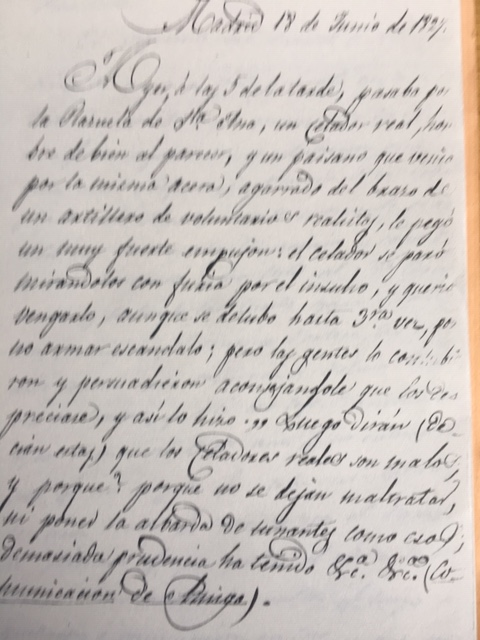 Madrid 18 de Junio de 1827.
Ayer, á las 5 de la tarde, pasaba por
la Plazuela de Sta. Ana, un Celador real, hom
bre de bien al parecer, y un paisano que venia
por la misma acera, agarrado del brazo de
un artillero de voluntarios realistas, le pegó
un muy fuerte empujon: el celador se paró
mirándolos con furia por el insulto, y queria
vengarlo, aunque se detubo hasta 3ra. vez, por
no armar escandalo; pero las gentes lo
ron y persuadieron aconsejandole que los des
preciase, y así lo hizo. " Luego dirán (de-
cian estas) que los Celadores reales son malos,
y porque? porque no se dejan maltratar,
ni poner la albarda de tunantes como esos;
demasiada prudencia ha tenido &c.a &c.a (Co-
municacion de